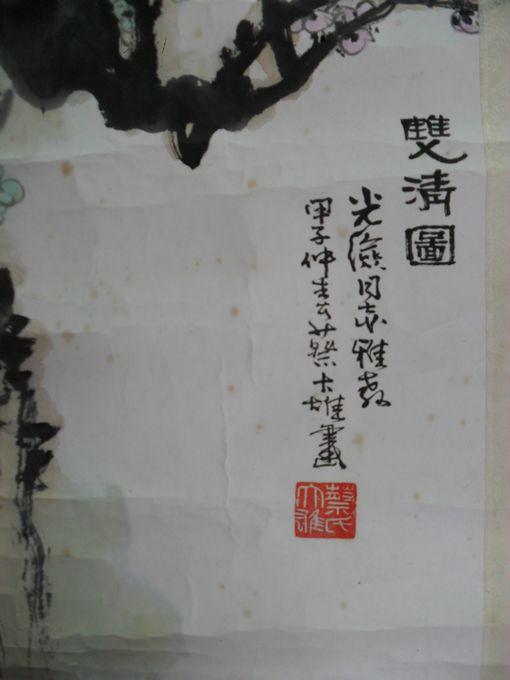 雙清圖
光同志雅教
甲子仲春蔡大雄畫
蔡氏大雄